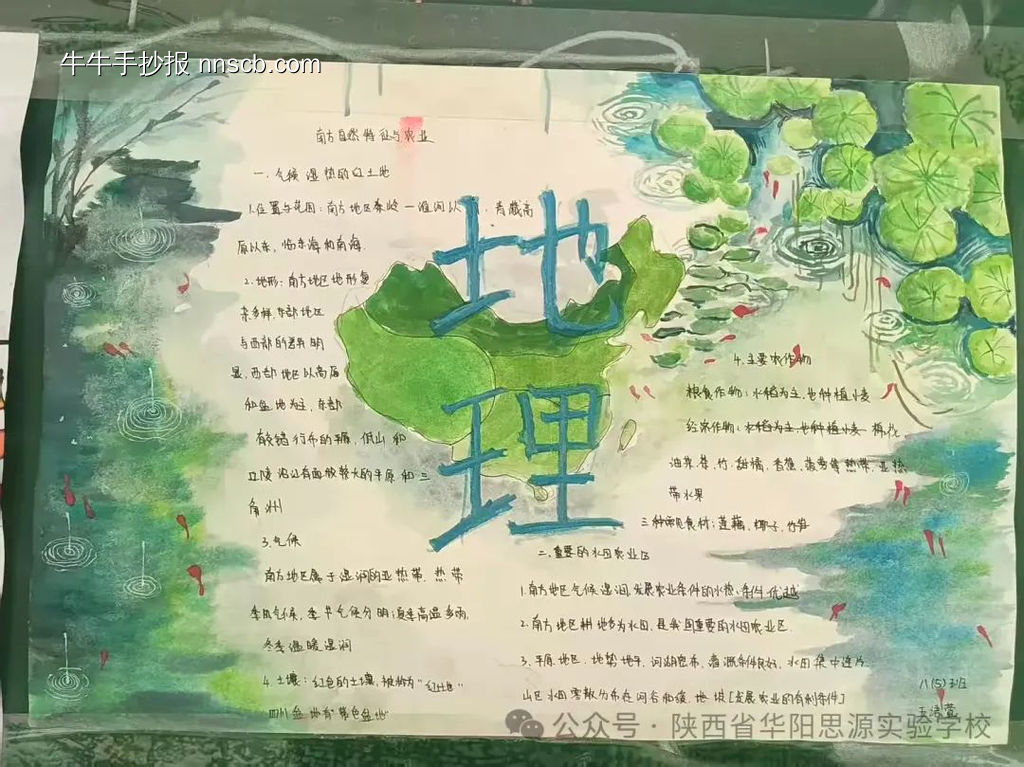 牛牛手抄报 nnscb.com
南方自然特征与农业
一、气候湿热的红土地
1.位置与范围:南方地区秦岭一淮河以 、青藏高
原以东,临东海和南海.
2.地形:南方地区地形复
杂多样,东部地区
与西部的差异明
显,西部地区以高原
和盆地为主,东部
有较错 分布的平原、低山和
丘陵 沿江有面积较大的平原和三
角州
3.气候
南方地区属于湿润的亚热带、热带
季风气候,季节气候分明:夏季高温多雨,
冬季温暖湿润
4.土壤:红色的土壤,被称为"红土地"
四川盆地有"紫色盆地"
地
理
4.主要农作物
粮食作物:水稻为主,也种植小麦
经济作物:水稻为主,也种植小麦 棉花
油菜、茶、竹、甜橘、香蕉、菠萝等热带、亚热
带水果
三种常见食材:莲藕、椰子、竹笋
二、重要的水田农业区
1.南方地区气候湿润,发展农业条件的水热条件优越
2.南方地区耕地多为水田,是我国重要的水田农业区.
3.平原地区,地势地平,河湖密布,灌溉条件良好,水田集中连片
山区水田零散分布在河谷和缓 地块[发展农业的有利条件]
八(5)班
王 萱
公众号·陕西省华阳思源实验学校